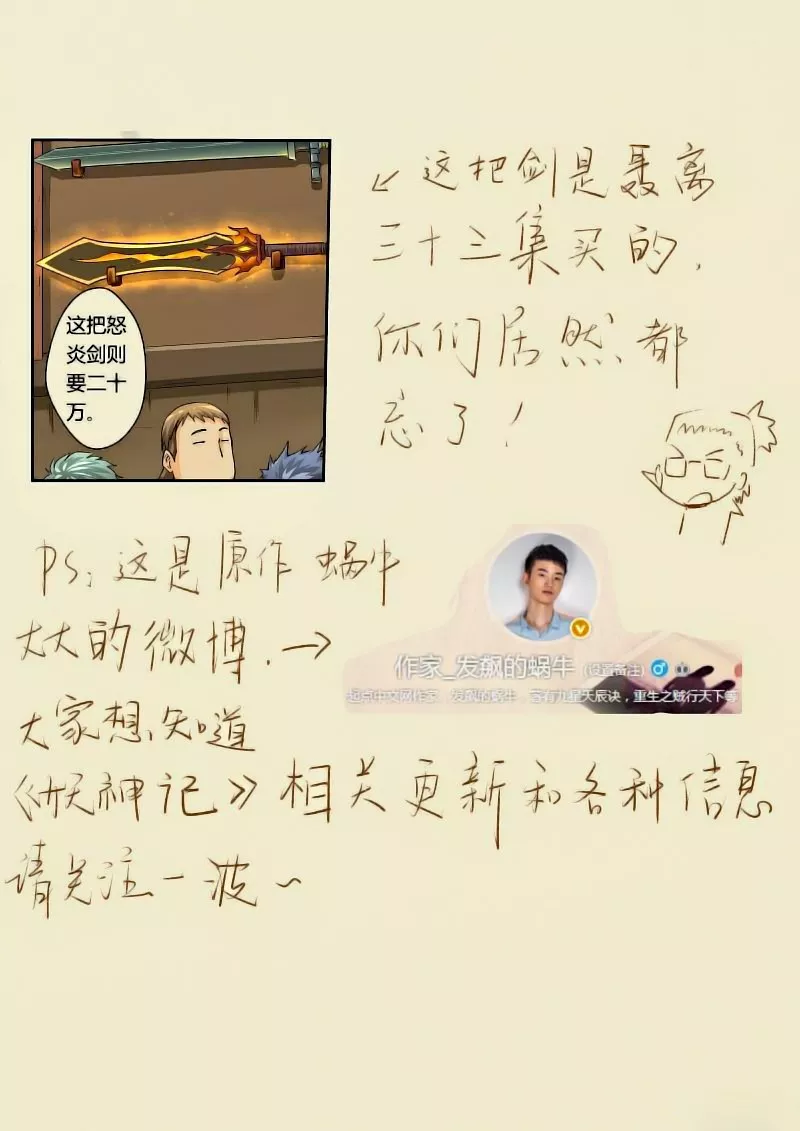 这把怒
炎剑则
要二十
万。
← 这把剑是聂离
三十三集买的.
你们居然都
忘了!
PS: 这是原作 蜗牛
大大的微博. →
作家_发飙的蜗牛 (设置备注)
起点中文网作家、发飙的蜗牛，著有九星天辰诀，重生之贼行天下等
大家想知道
《妖神记》相关更新和各种信息
请关注一波~